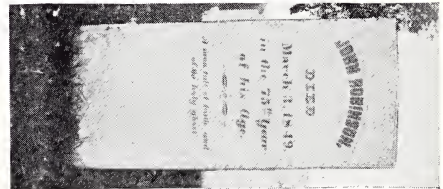 JOHN ROBINSON,
DIED
March 3, 1849
in the 75th year
of his Age.
A man full of faith and
of the holy ghost